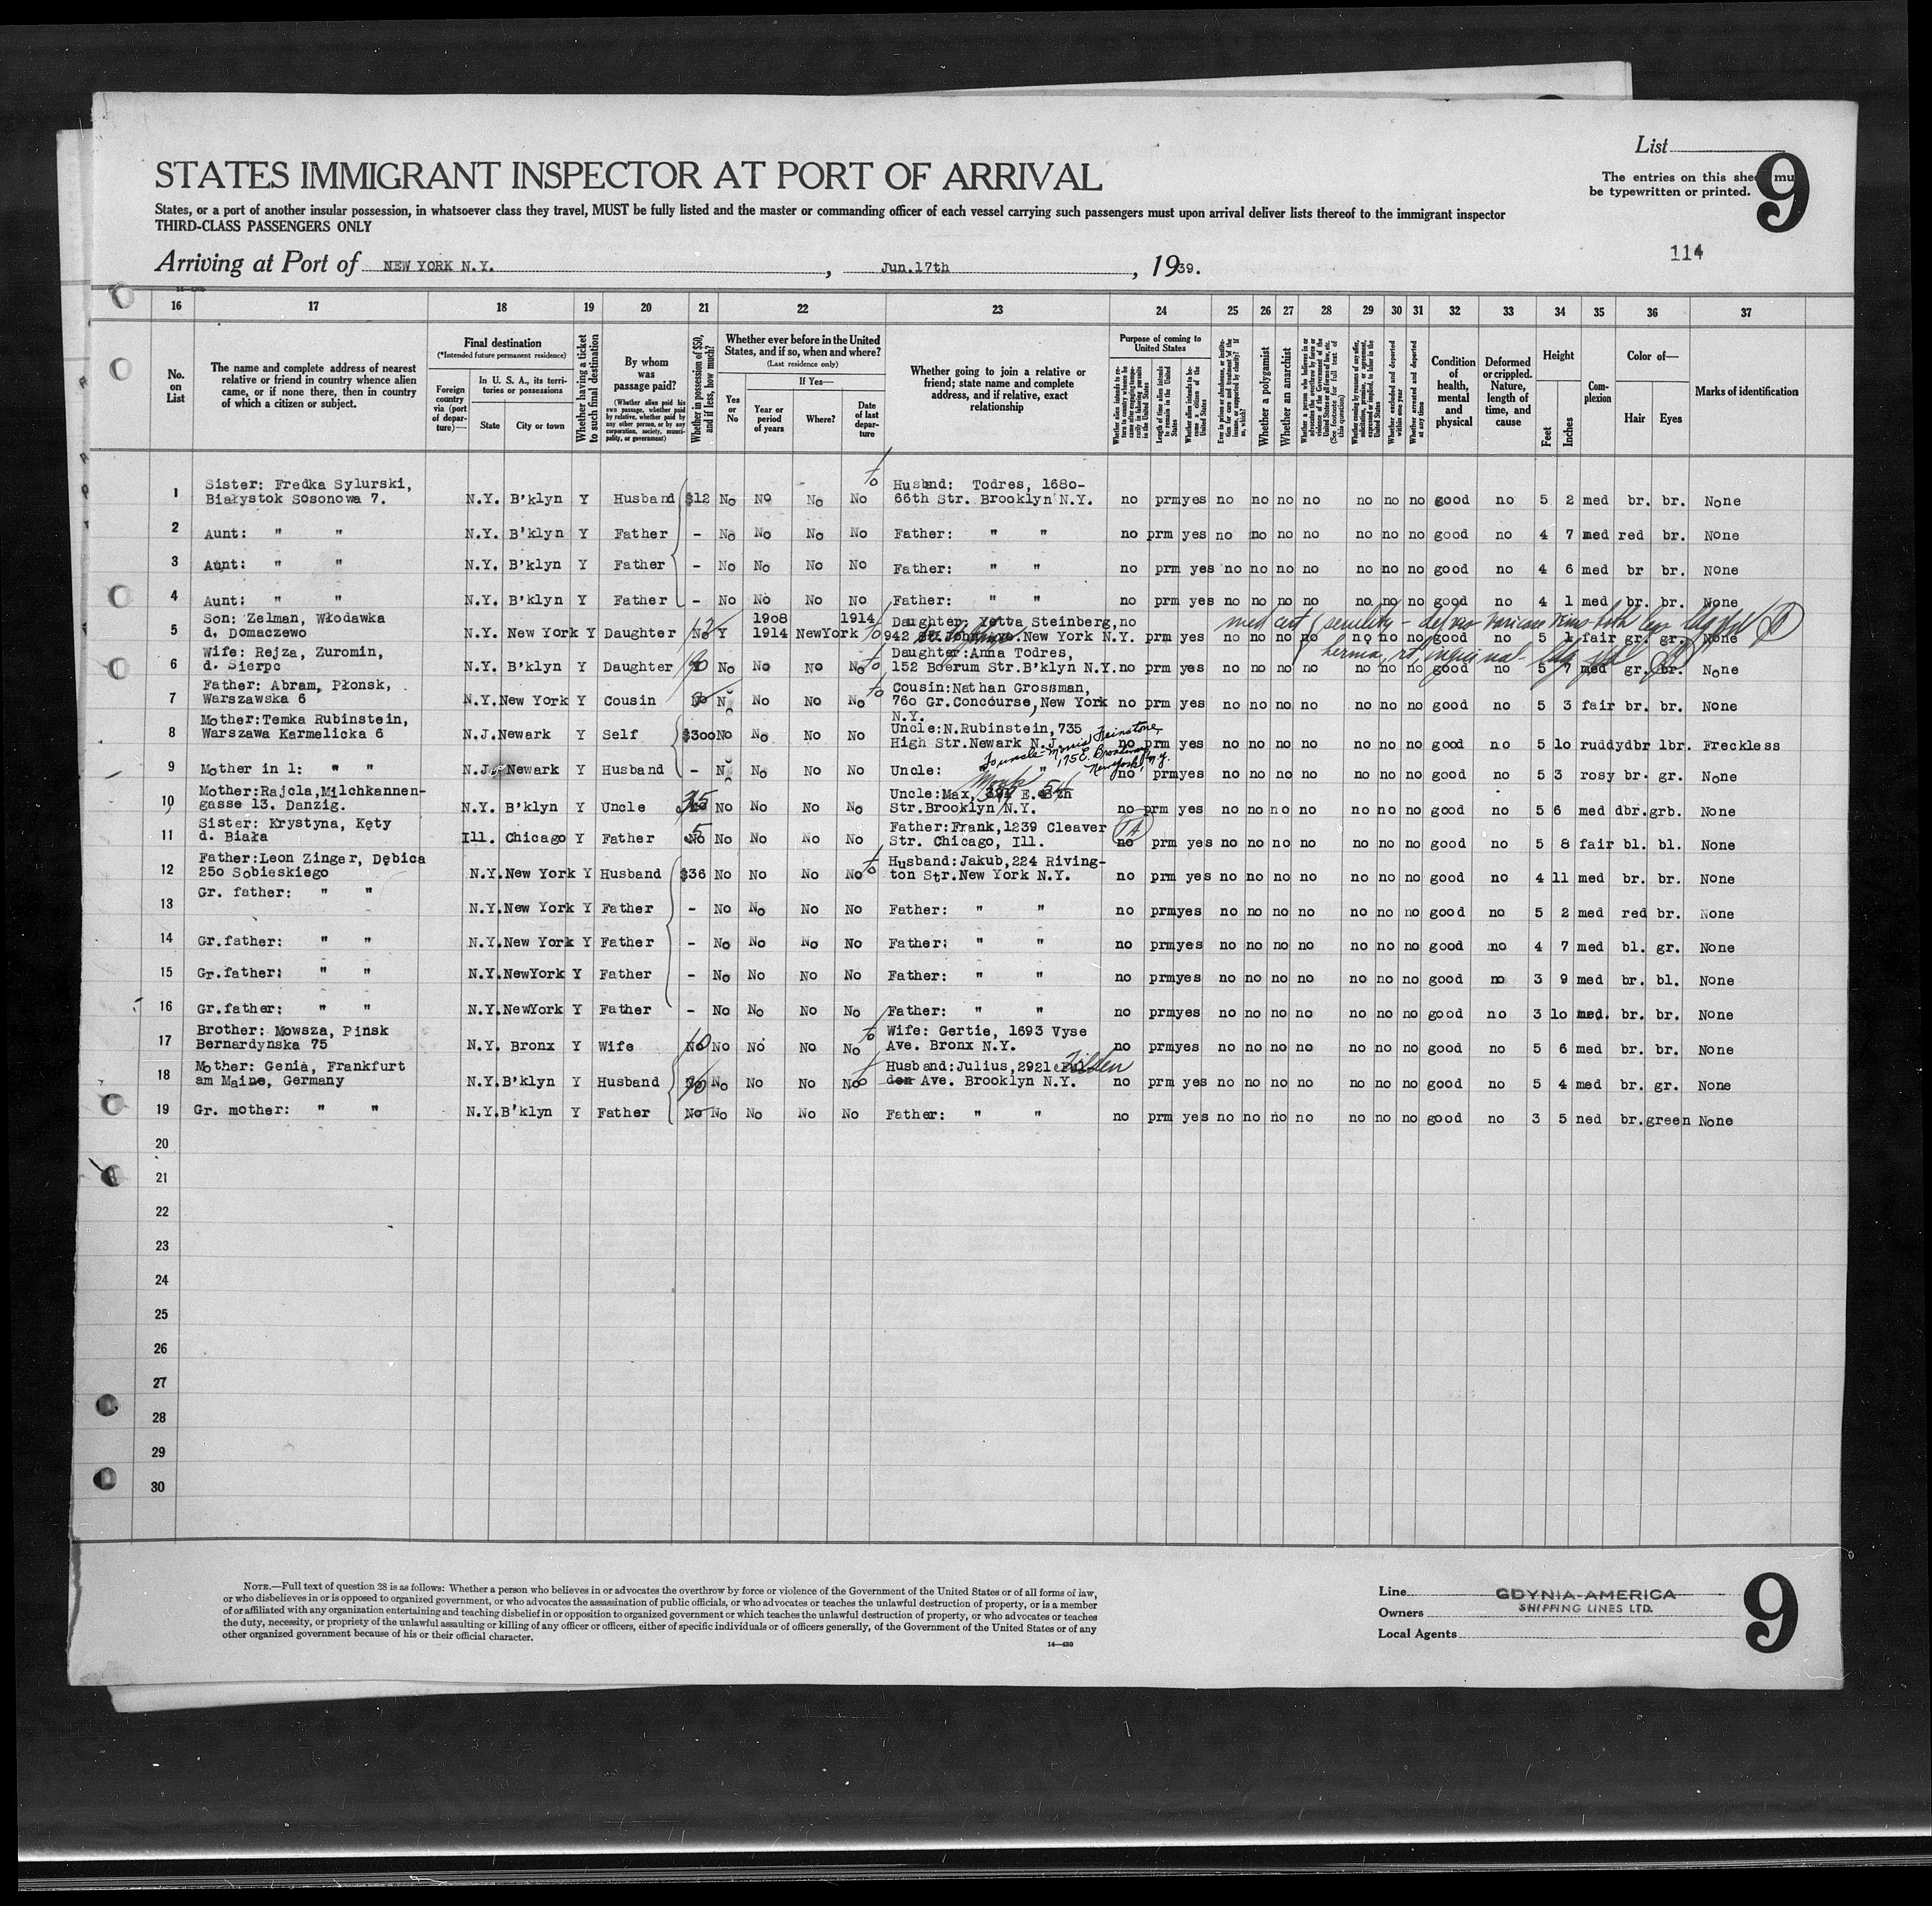 List
The entries on this sheet mu
be typewritten or printed.
9
STATES IMMIGRANT INSPECTOR AT PORT OF ARRIVAL
States, or a port of another insular possession, in whatsoever class they travel, MUST be fully listed and the master or commanding officer of each vessel carrying such passengers must upon arrival deliver lists thereof to the immigrant inspector
THIRD-CLASS PASSENGERS ONLY
114
Arriving at Port of NEW YORK N.Y. , Jun.17th , 1939.
16 17 18 19 20 21 22 23 24 25 26 27 28 29 30 31 32 33 34 35 36 37
No. on List
The name and complete address of nearest relative or friend in country whence alien came, or if none there, then in country of which a citizen or subject.
Final destination
(*Intended future permanent residence)
Foreign country via (port of departure)—
In U. S. A., its territories or possessions
State
City or town
Whether having a ticket to such final destination
By whom was passage paid?
(Whether alien paid his own passage, whether paid by relative, whether paid by any other person, or by any corporation, society, municipality, or government)
Whether in possession of $50, and if less, how much?
Whether ever before in the United States, and if so, when and where?
(Last residence only)
Yes or No
If Yes—
Year or period of years
Where?
Date of last departure
Whether going to join a relative or friend; state name and complete address, and if relative, exact relationship
Purpose of coming to United States
Length of time alien intends to remain in the United States
Whether alien intends to become a citizen of the United States
Whether a polygamist
Whether an anarchist
Whether excluded and deported within one year
Whether arrested and deported at any time
Condition of health, mental and physical
Deformed or crippled. Nature, length of time, and cause
Height
Feet
Inches
Complexion
Color of—
Hair
Eyes
Marks of identification
Sister: Fredka Sylurski, Husbnd: Todres, 1680-
1 Białystok Sosonowa 7. N.Y. B'klyn Y Husband $12 No No No No to 66th Str. Brooklyn N.Y. no prm yes no no no no no no no good no 5 2 med br. br. None
2 Aunt: " " N.Y. B'klyn Y Father - No No No No Father: " " no prm yes no no no no no no no good no 4 7 med red br. None
3 Aunt: " " N.Y. B'klyn Y Father - No No No No Father: " " no prm yes no no no no no no no good no 4 6 med br br. None
4 Aunt: " " N.Y. B'klyn Y Father - No No No No Father: " " no prm yes no no no no no no no good no 4 1 med br. br. None
Son: Zelman, Włodawka 1908 1914 Daughter, Yetta Steinberg, no med cert senility
5 d. Domaczewo N.Y. New York Y Daughter No Y 1914 NewYork to 942 New York N.Y. prm yes no no no no no no no good no 5 1 fair gr. gr. None
Wife: Rejza, Zuromin, Daughter:Anna Todres, hernia, rt, inguinal
6 d. Sierpc N.Y. B'klyn Y Daughter No No No to 152 Boerum Str.B'klyn N.Y. no prm yes no no no no no no no good no 5 7 med gr. br. None
Father: Abram, Płonsk, Cousin:Nathan Grossman,
7 Warszawska 6 N.Y.New York Y Cousin No No No No to 760 Gr.Concourse, New York no prm yes no no no no no no no good no 5 3 fair br. br. None
N.Y.
Mother:Temka Rubinstein, Uncle:N.Rubinstein, 735
8 Warszawa Karmelicka 6 N.J.Newark Y Self $300 No No No No High Str.Newark N.J. no prm yes no no no no no no no good no 5 10 ruddy dbr lbr. Freckless
To uncle - Morris Feinstone, 175 E. Broadway, New York, N.Y.
9 Mother in l: " " N.J. Newark Y Husband - No No No No Uncle: " " no prm yes no no no no no no no good no 5 3 rosy br. gr. None
Mother:Rajcla,Milchkannen- Uncle:Max, E. 8th 54
10 gasse 13. Danzig. N.Y. B'klyn Y Uncle 35 No No No No Str.Brooklyn N.Y. no prm yes no no no no no no no good no 5 6 med dbr.grb. None
Sister: Krystyna, Kęty Father:Frank, 1239 Cleaver
11 d. Biała Ill. Chicago Y Father 5 No No No No No Str. Chicago, Ill. no prm yes no no no no no no no good no 5 8 fair bl. bl. None
Father:Leon Zinger, Dębica Husband:Jakub, 224 Riving-
12 250 Sobieskiego N.Y.New York Y Husband $36 No No No No to ton Str.New York N.Y. no prm yes no no no no no no no good no 4 11 med br. br. None
13 Gr. father: " " N.Y.New York Y Father - No No No No Father: " " no prm yes no no no no no no no good no 5 2 med red br. None
14 Gr.father: " " N.Y.New York Y Father - No No No No Father: " " no prm yes no no no no no no no good no 4 7 med bl. gr. None
15 Gr.father: " " N.Y.NewYork Y Father - No No No No Father: " " no prm yes no no no no no no no good no 3 9 med br. bl. None
16 Gr.father: " " N.Y.NewYork Y Father - No No No No Father: " " no prm yes no no no no no no no good no 3 10 med. br. br. None
Brother: Mowsza, Pinsk Wife: Gertie, 1693 Vyse
17 Bernardynska 75 N.Y. Bronx Y Wife 10 No No No No No to Ave. Bronx N.Y. no prm yes no no no no no no no good no 5 6 med br. br. None
Mother: Genia, Frankfurt Husband:Julius, 2921 Tilden
18 am Maine, Germany N.Y.B'klyn Y Husband No No No No No to den Ave. Brooklyn N.Y. no prm yes no no no no no no no good no 5 4 med br. gr. None
19 Gr. mother: " " N.Y.B'klyn Y Father No No No No No Father: " " no prm yes no no no no no no no good no 3 5 ned br.green None
20
21
22
23
24
25
26
27
28
29
30
NOTE.—Full text of question 28 is as follows: Whether a person who believes in or advocates the overthrow by force or violence of the Government of the United States or of all forms of law,
or who disbelieves in or is opposed to organized government, or who advocates the assassination of public officials, or who advocates or teaches the unlawful destruction of property, or is a member
of or affiliated with any organization entertaining and teaching disbelief in or opposition to organized government or which teaches the unlawful destruction of property, or who advocates or teaches
the duty, necessity, or propriety of the unlawful assaulting or killing of any officer or officers, either of specific individuals or of officers generally, of the Government of the United States or of any
other organized government because of his or their official character.
14—430
Line GDYNIA-AMERICA
Owners SHIPPING LINES LTD.
Local Agents
9